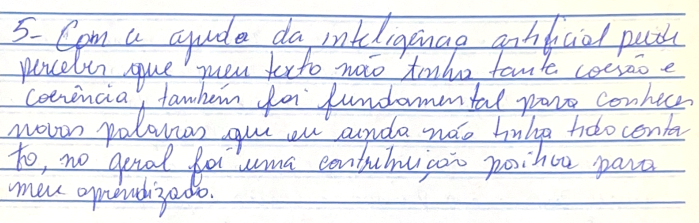 5- Com a ajuda da inteligência artificial pude
perceber que meu texto não tinha tanta coesão e
coerência, também foi fundamental para conhecer
novas palavras que eu ainda não tinha tido conta
to, no geral foi uma contribuição positiva para
meu aprendizado.